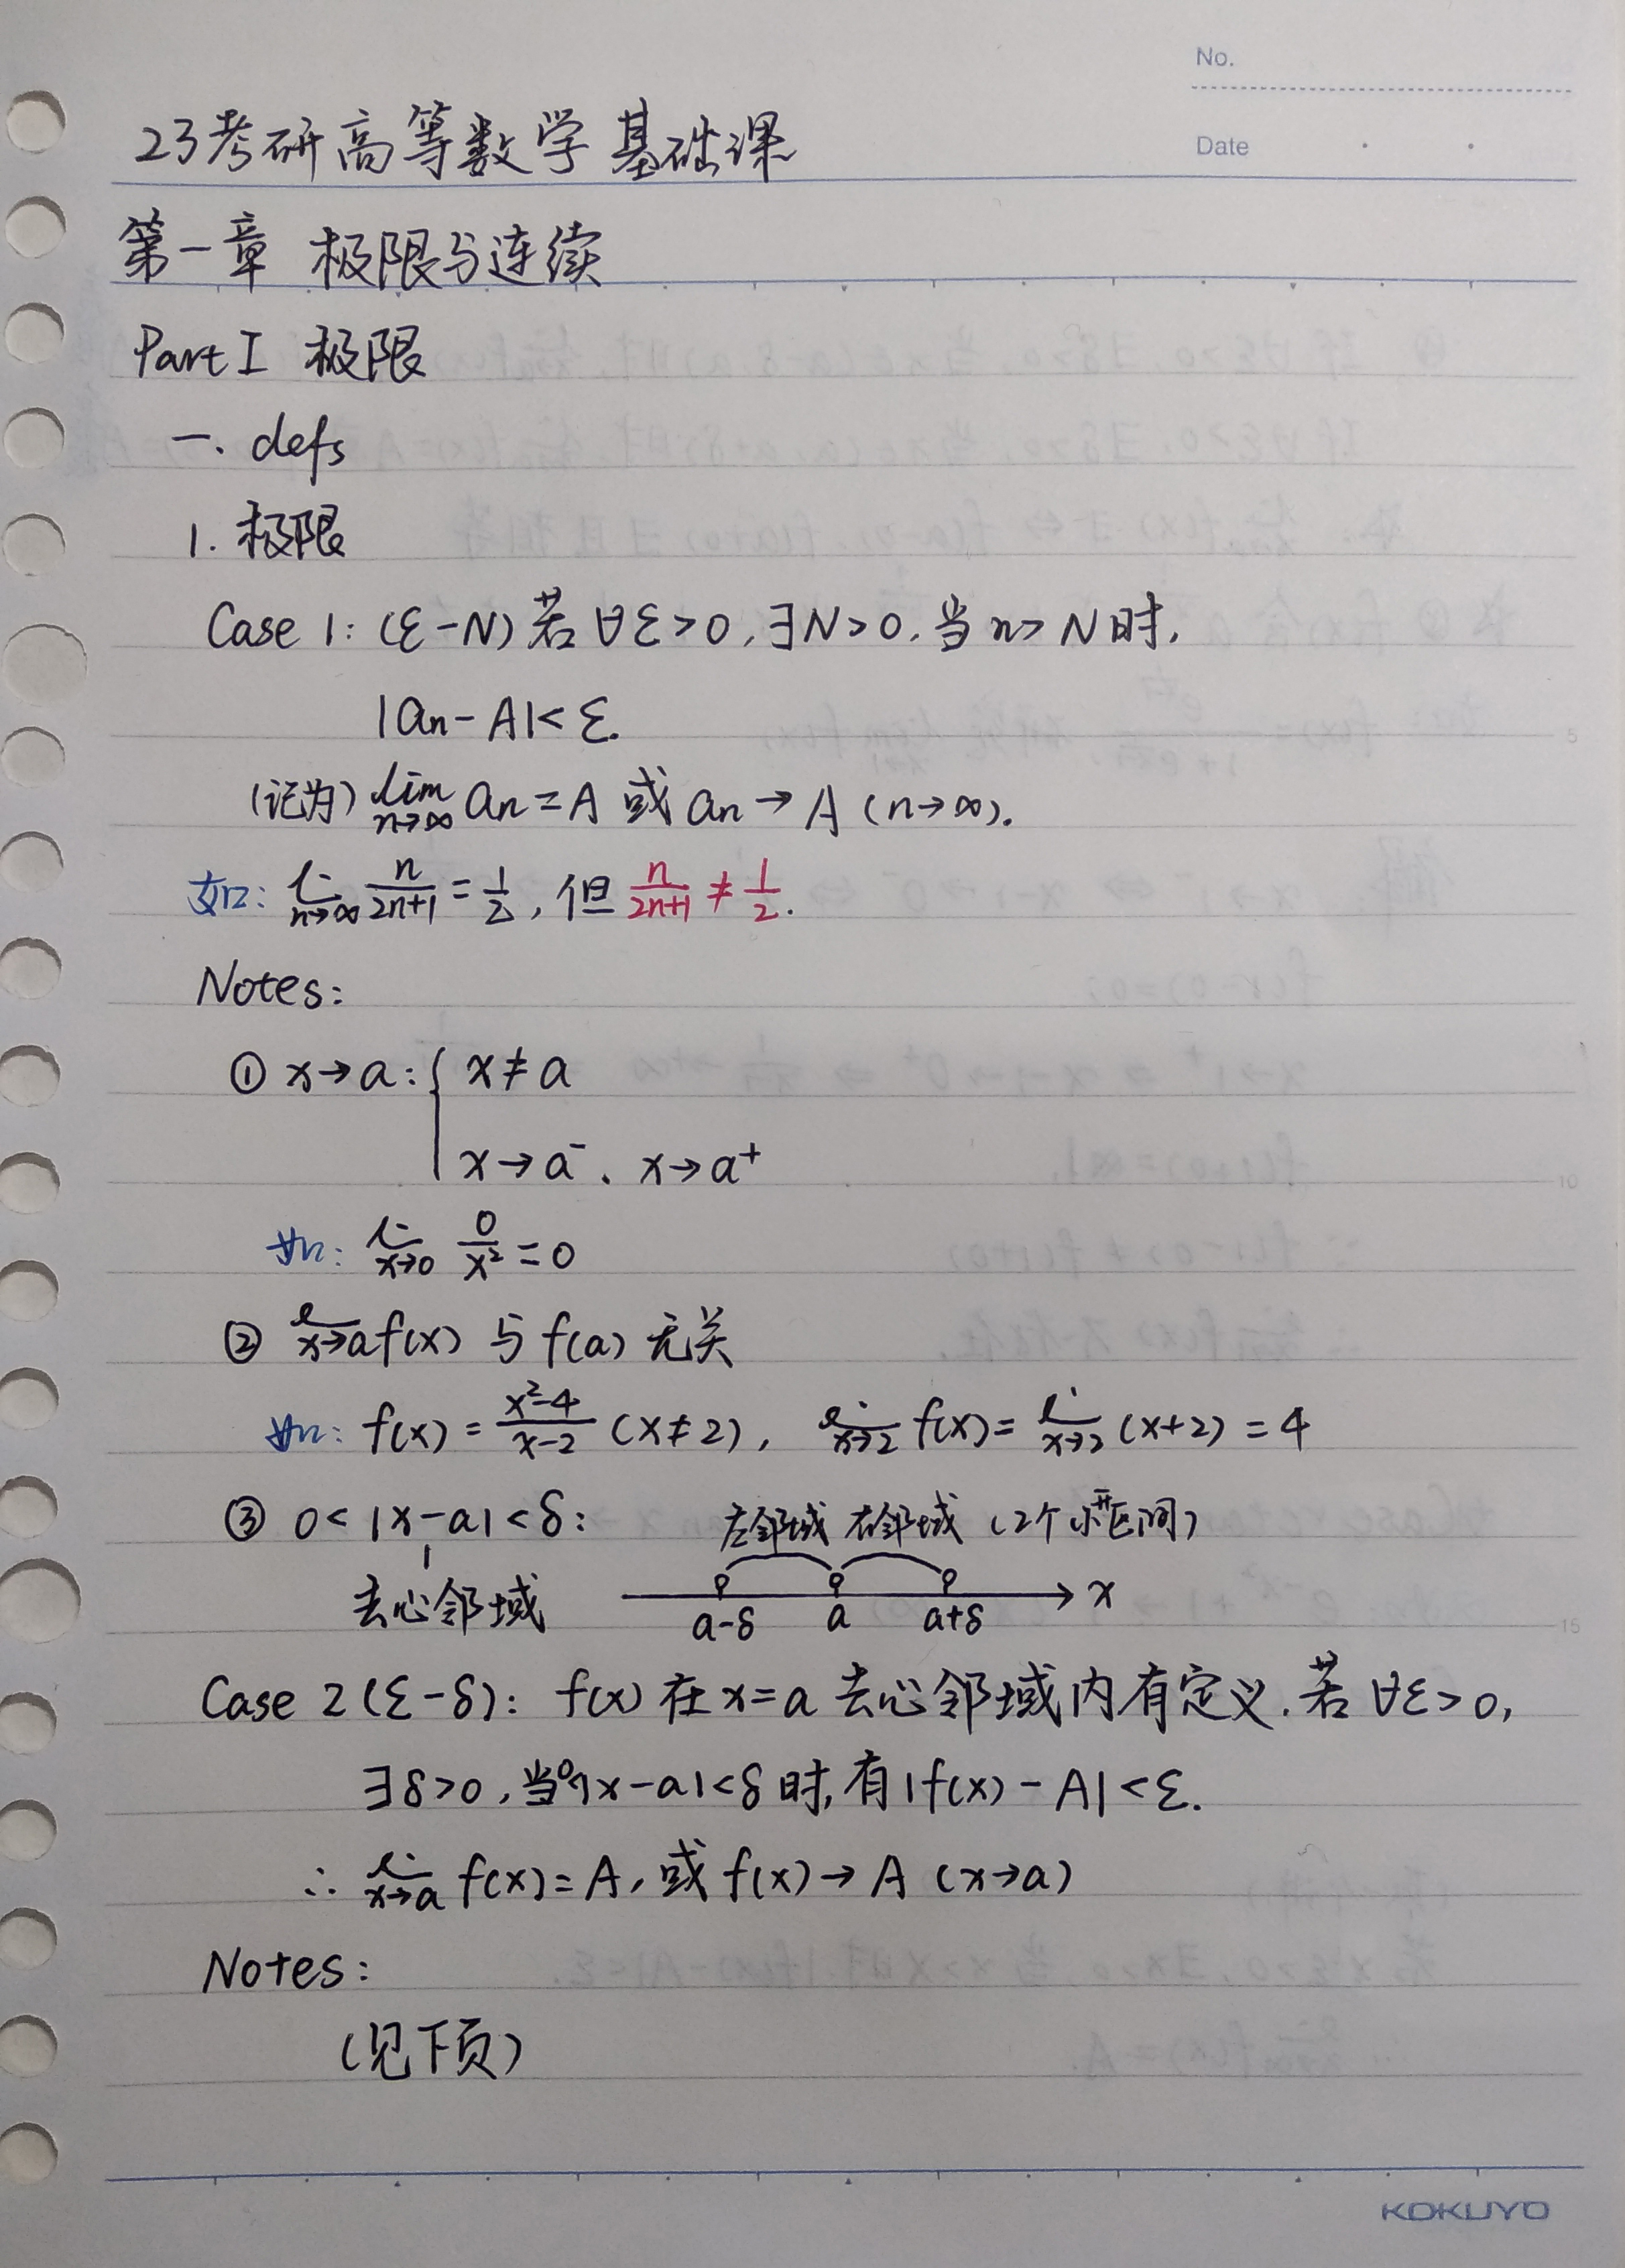 No.
Date
23考研高等数学基础课
第一章 极限与连续
Part I 极限
一. defs
1. 极限
Case 1: (ε-N) 若∀ε>0,∃N>0,当n>N时,
|an-A|<ε.
(记为) lim n→∞ an=A 或 an→A (n→∞).
如: lim n→∞ n/(2n+1) = 1/2, 但 n/(2n+1) ≠ 1/2.
Notes:
① x→a: { x≠a
x→a⁻、x→a⁺
如: lim x→0 0/x² = 0
② lim x→a f(x) 与 f(a) 无关
如: f(x) = (x²-4)/(x-2) (x≠2), lim x→2 f(x) = lim x→2 (x+2) = 4
③ 0<|x-a|<δ: 左邻域 右邻域 (2个小开区间)
去心邻域
a-δ a a+δ x
Case 2 (ε-δ): f(x) 在 x=a 去心邻域内有定义.若∀ε>0,
∃δ>0,当0<|x-a|<δ时,有|f(x)-A|<ε.
∴ lim x→a f(x)=A,或f(x)→A (x→a)
Notes:
(见下页)
5
10
15
KOKUYO